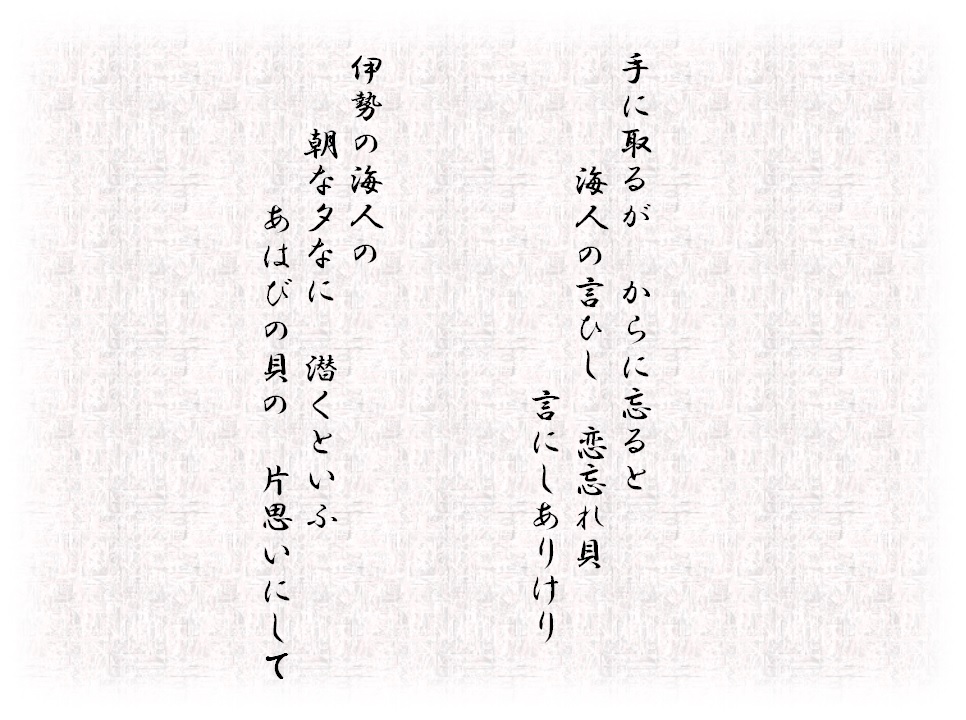 手に取るが　からに忘ると
海人の言ひし　恋忘れ貝
言にしありけり
伊勢の海人の
朝な夕なに　潜くといふ
あはびの貝の　片思いにして